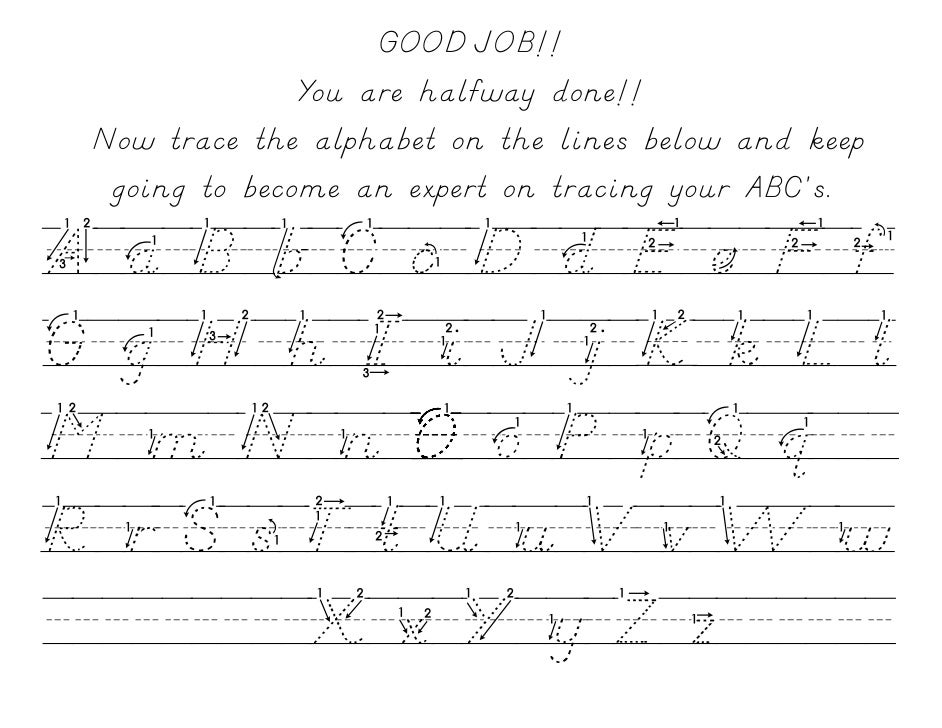 GOOD JOB!!
You are halfway done!!
Now trace the alphabet on the lines below and keep
going to become an expert on tracing your ABC's.
A a B b C c D d E e F f
G g H h I i J j K k L l
M m N n O o P p Q q
R r S s T t U u V v W w
X x Y y Z z